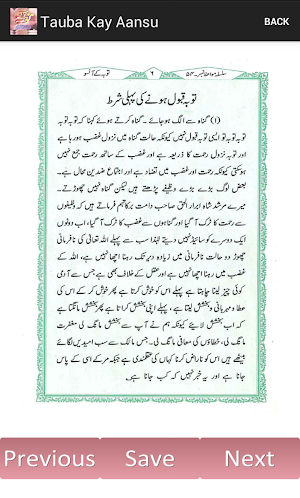 Tauba Kay Aansu
BACK
توبہ کے آنسو
۶
سلسلہ مواعظ حسنہ نمبر۔ ۵۴
توبہ قبول ہونے کی پہلی شرط
(۱) گناہ سے الگ ہوجائے۔ گناہ کرتے ہوئے کہنا کہ توبہ توبہ
توبہ تو ایسی توبہ قبول نہیں کیونکہ حالت گناہ میں نزول غضب ہو رہا ہے
اور توبہ نزول رحمت کا ذریعہ ہے اور غضب کے ساتھ رحمت جمع نہیں
ہوسکتی کیونکہ رحمت اور غضب میں تضاد ہے اور اجتماع ضدین محال ہے۔
بعض لوگ بڑے بڑے وظیفے پڑھتے ہیں لیکن گناہ نہیں چھوڑتے۔
میرے مرشد شاہ ابرار الحق صاحب دامت برکاتہم فرماتے ہیں کہ وظیفوں
سے رحمت کا ٹرک آگیا اور گناہوں سے غضب کا ٹرک آگیا، اب دونوں
ایک دوسرے کو سائیڈ نہیں دیتے لہٰذا سب سے پہلے اللہ تعالیٰ کی نافرمانی
چھوڑ دو حالت نافرمانی میں زیادہ دیر تک رہنا اچھا نہیں ہے، اللہ کے
غضب میں رہنا اچھا نہیں ہے اور عقل کے خلاف بھی ہے جس سے آدمی
کوئی چیز لینا چاہتا ہے پہلے اس کو خوش کرتا ہے پھر خوش کر کے اس کی
عطا و مہربانی و بخشش لیتا ہے، پہلے اپنی بخشش کراتا ہے پھر بخشش مانگتا ہے
کہ اب بخشش لائیے کیونکہ ہم نے آپ سے بخشش مانگ لی مغفرت
مانگ لی، خطاؤں کی معافی مانگ لی۔ جس مالک سے سب امیدیں لگائے
بیٹھے ہیں اس کو ناراض کرنا کہاں کی عقلمندی ہے جبکہ مرکے اسی کے پاس
جانا ہے اور یہ خبر نہیں کہ کب جانا ہے۔
Previous
Save
Next